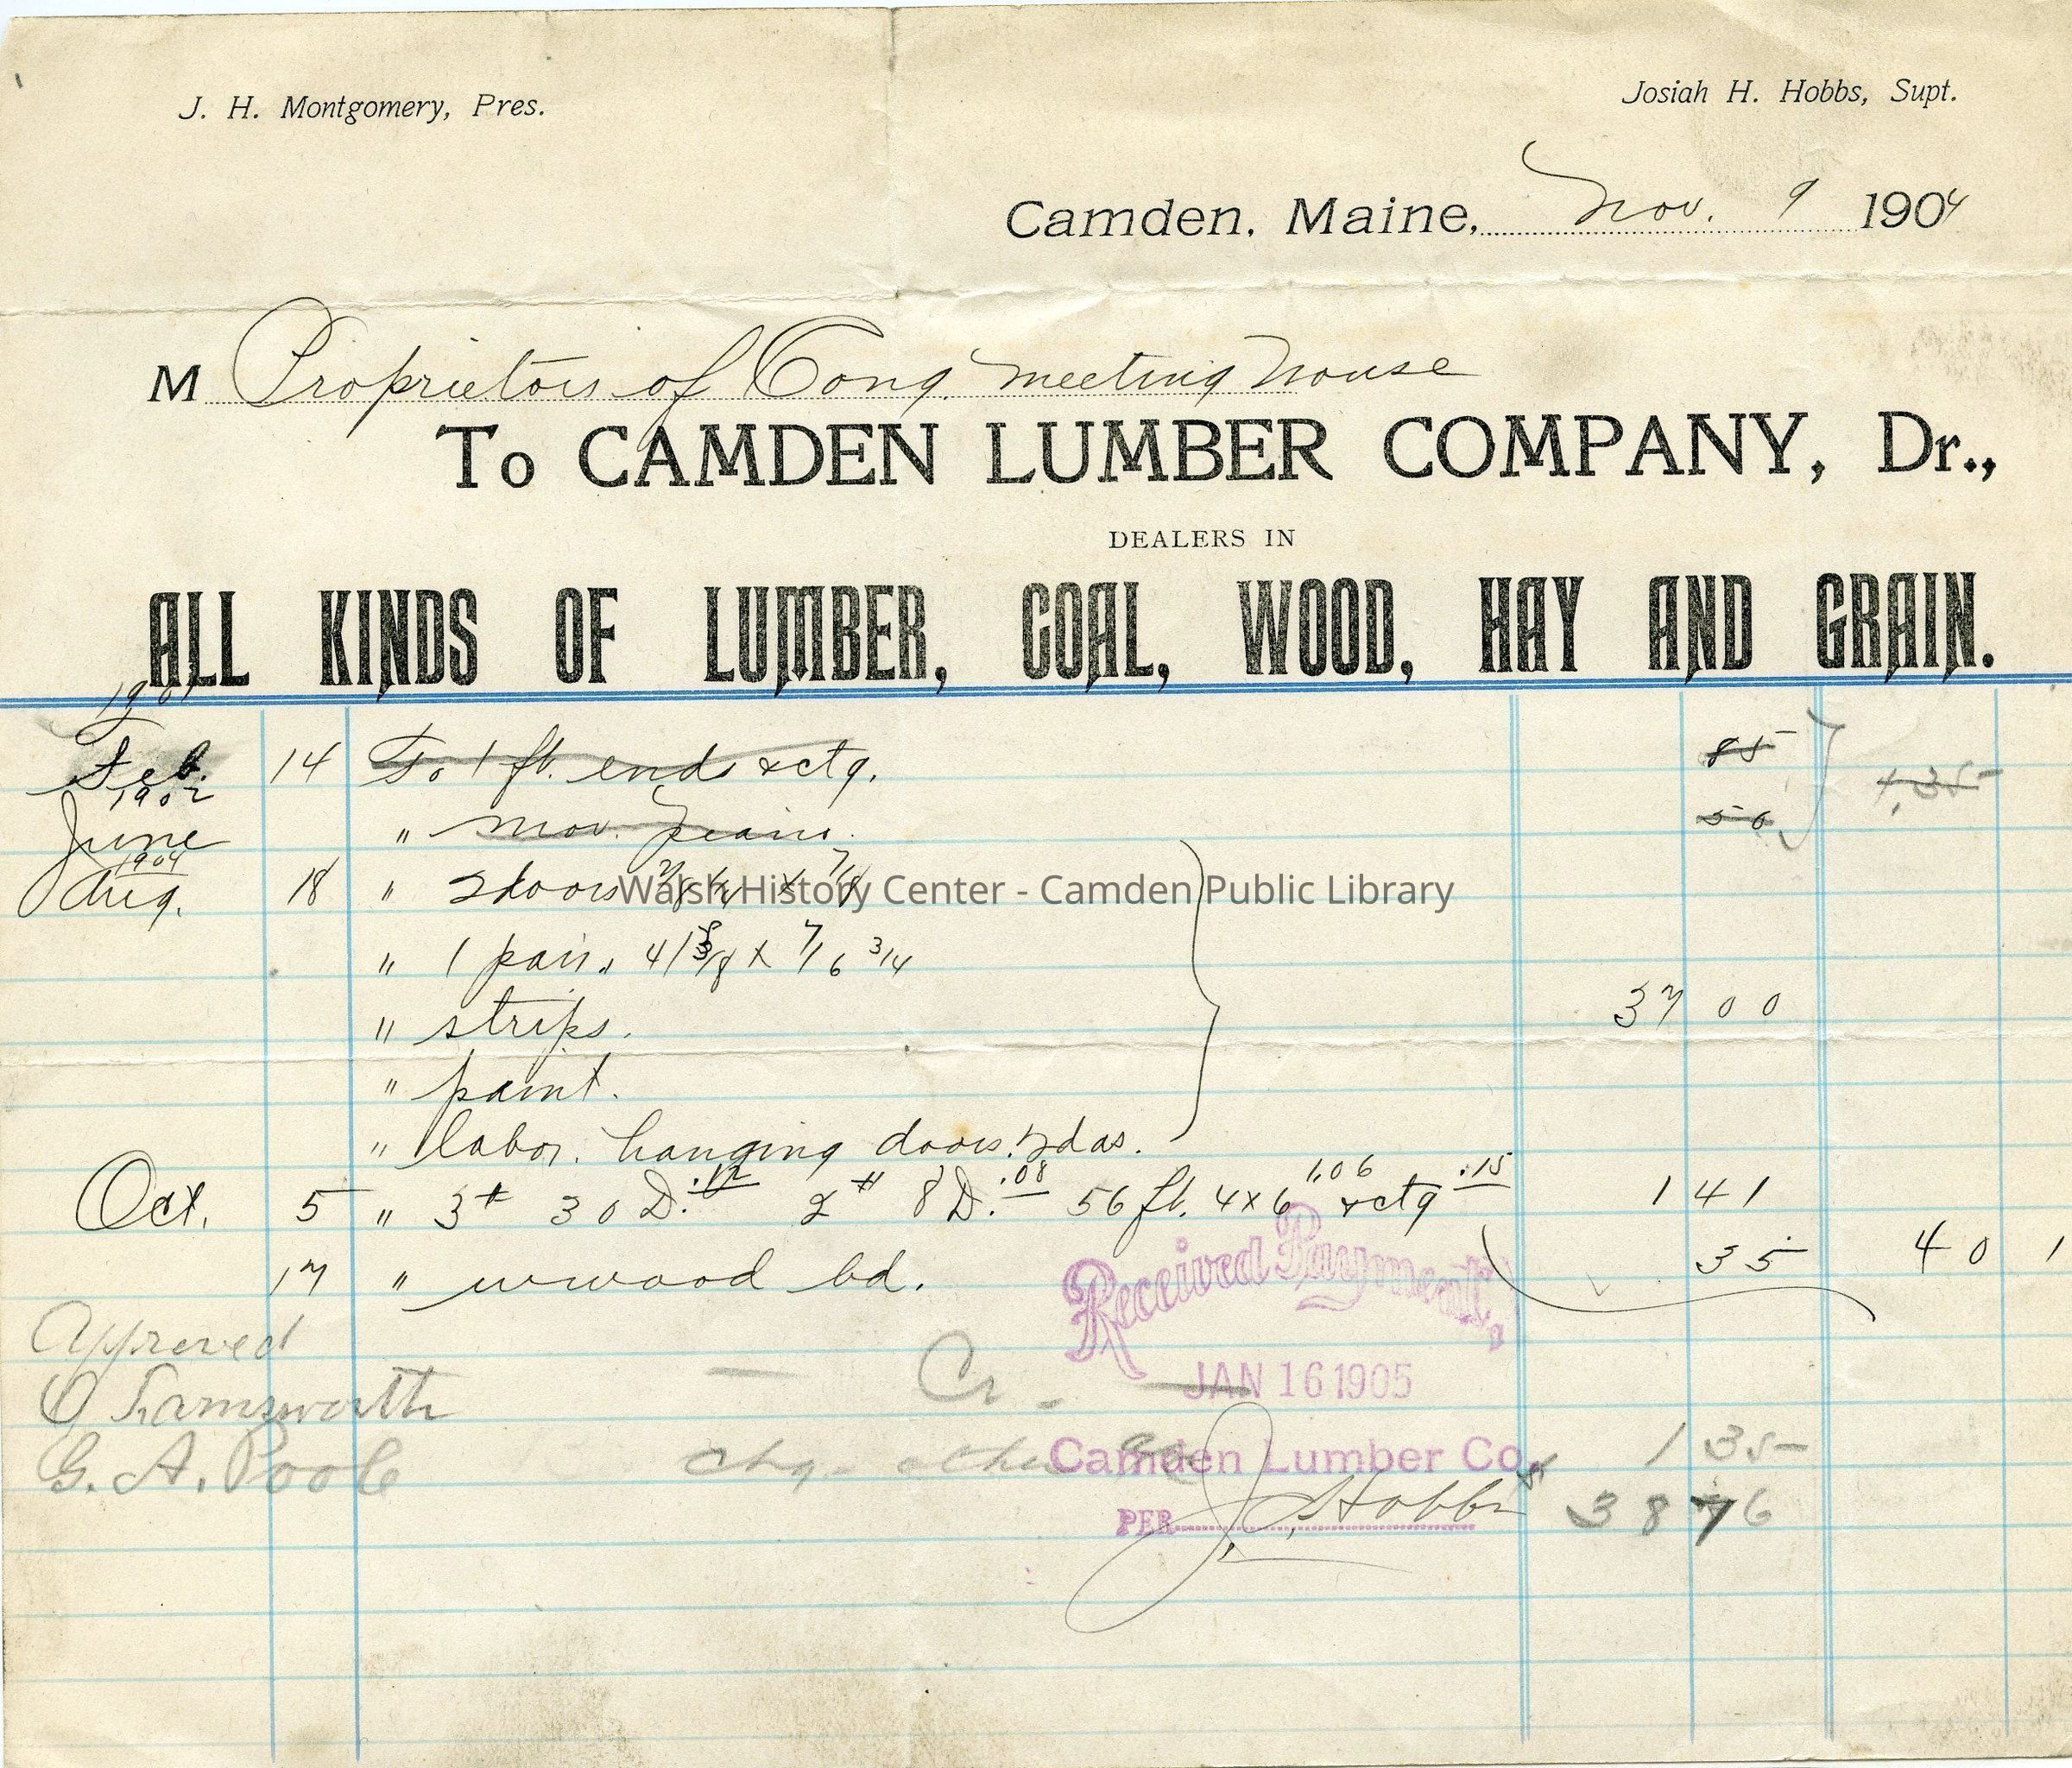 J. H. Montgomery, Pres.
Josiah H. Hobbs, Supt.
Camden, Maine, Nov. 9 1904
M Proprietors of Cong. meeting house
To CAMDEN LUMBER COMPANY, Dr.,
DEALERS IN
ALL KINDS OF LUMBER, COAL, WOOD, HAY AND GRAIN.
1901
Feb. 14 To 1 ft. ends & ctg. 85
1.35
1902
June " mov. 50
1904
Aug. 18 " 2 doors
Walsh History Center - Camden Public Library
" 1 pair. 4/ 3/8 x 7/6 3/4
" strips. 37 00
" paint.
" labor. hanging doors. 2 das.
Oct. 5 " 3# 30 D. .12 2# 8 D. .08 56 ft. 4x6 1.06 & ctg .15 1 41
17 " wwood bd. 35 40 1
Received Payment,
Approved
Cr.
JAN 16 1905
O Farnsworth
G. A. Poole
chg. other
Camden Lumber Co.
1 35
PER J. H. Hobbs
38 76